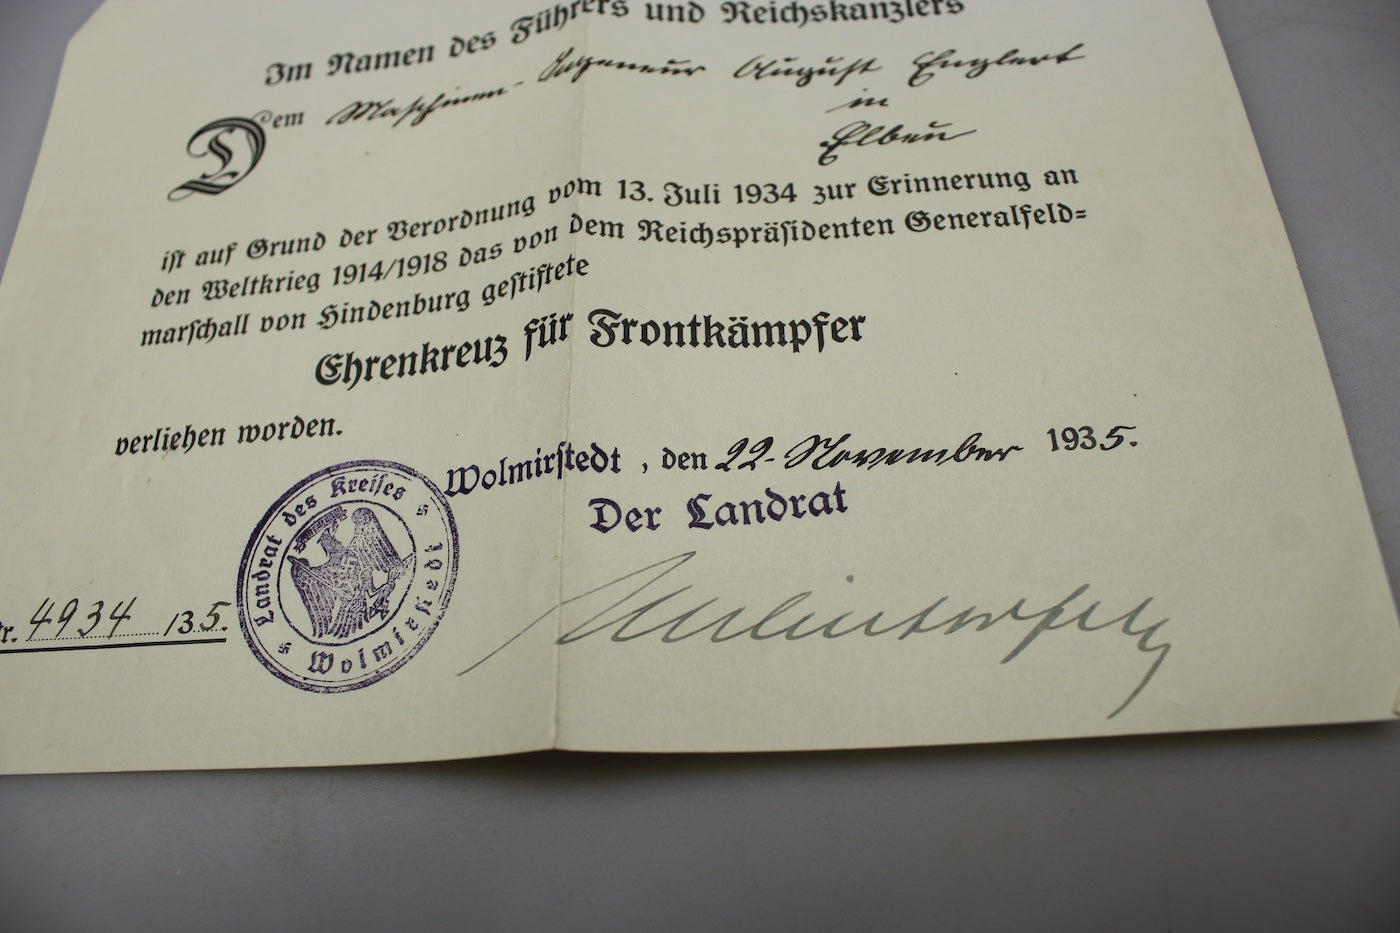 Im Namen des Führers und Reichskanzlers
Dem Maschinen-Ingeneur August Englert
in
Elbeu
ist auf Grund der Verordnung vom 13. Juli 1934 zur Erinnerung an
den Weltkrieg 1914/1918 das von dem Reichspräsidenten Generalfeld=
marschall von Hindenburg gestiftete
Ehrenkreuz für Frontkämpfer
verliehen worden.
Wolmirstedt, den 22. November 1935.
Der Landrat
Landrat des Kreises
Wolmirstedt
Nr. 4934 / 35.